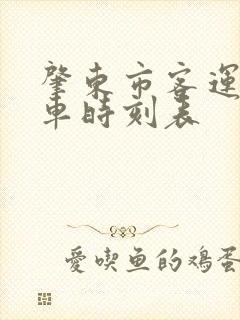 肇東市客運
車時刻表
愛喫魚的鸡蛋